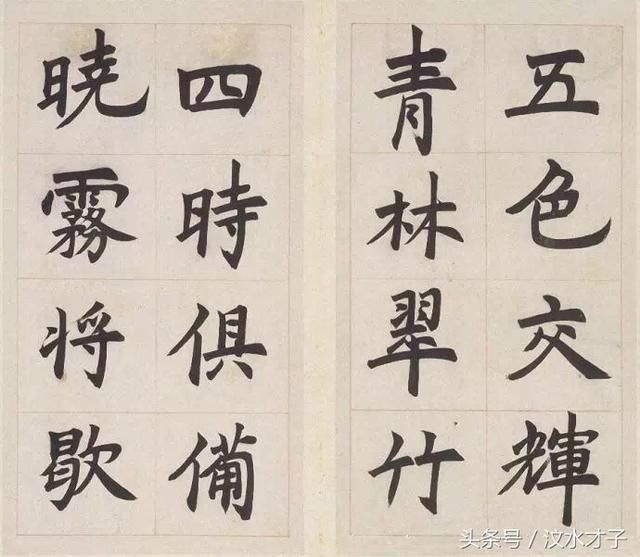 五色交輝
青林翠竹
四時俱備
曉霧将歇
头条号／汶水才子